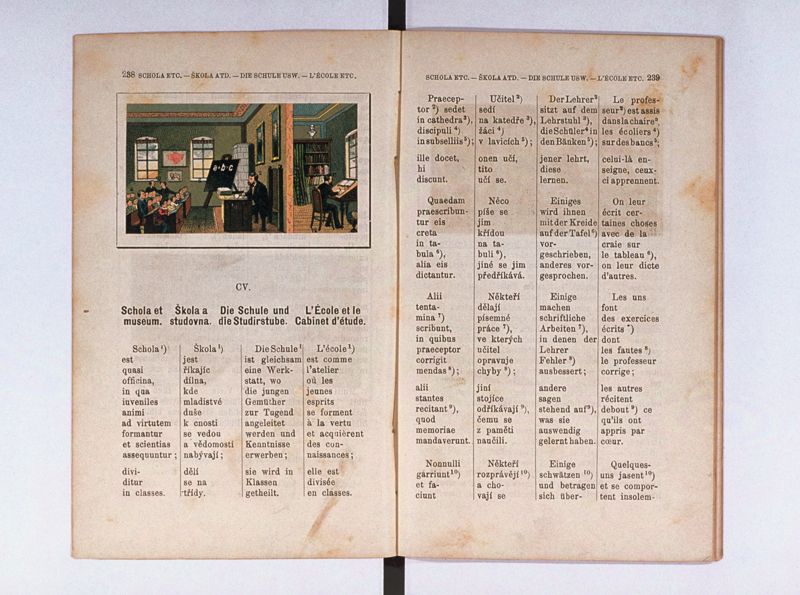 238 SCHOLA ETC. — ŠKOLA ATD. — DIE SCHULE USW. — L'ÉCOLE ETC.
a·b·c
CV.
Schola et museum.
Škola a studovna.
Die Schule und die Studirstube.
L'École et le Cabinet d'étude.
Schola ¹)
est
quasi
officina,
in qua
iuveniles
animi
ad virtutem
formantur
et scientias
assequuntur;
divi-
ditur
in classes.
Škola ¹)
jest
říkajíc
dílna,
kde
mladistvé
duše
k cnosti
se vedou
a vědomosti
nabývají;
dělí
se na
třídy.
Die Schule ¹
ist gleichsam
eine Werk-
statt, wo
die jungen
Gemüther
zur Tugend
angeleitet
werden und
Kenntnisse
erwerben;
sie wird in
Klassen
getheilt.
L'école ¹)
est comme
l'atelier
où les
jeunes
esprits
se forment
à la vertu
et acquièrent
des con-
naissances;
elle est
divisée
en classes.
SCHOLA ETC. — ŠKOLA ATD. — DIE SCHULE USW. — L'ÉCOLE ETC. 239
Praecep-
tor ²) sedet
in cathedra ³),
discipuli ⁴)
in subselliis ⁵);
ille docet,
hi
discunt.
Quaedam
praescribun-
tur eis
creta
in ta-
bula ⁶),
alia eis
dictantur.
Alii
tenta-
mina ⁷)
scribunt,
in quibus
praeceptor
corrigit
mendas ⁸);
alii
stantes
recitant ⁹),
quod
memoriae
mandaverunt.
Nonnulli
garriunt ¹⁰)
et fa-
ciunt
Učitel ²)
sedí
na katedře ³),
žáci ⁴)
v lavicích ⁵);
onen učí,
tito
učí se.
Něco
píše se
jim
křídou
na ta-
buli ⁶),
jiné se jim
předříkává.
Někteří
dělají
písemné
práce ⁷),
ve kterých
učitel
opravuje
chyby ⁸);
jiní
stojíce
odříkávají ⁹),
čemu se
z paměti
naučili.
Někteří
rozprávějí ¹⁰)
a cho-
vají se
Der Lehrer ²
sitzt auf dem
Lehrstuhl ³),
die Schüler ⁴ in
den Bänken ⁵);
jener lehrt,
diese
lernen.
Einiges
wird ihnen
mit der Kreide
auf der Tafel ⁶)
vor-
geschrieben,
anderes vor-
gesprochen.
Einige
machen
schriftliche
Arbeiten ⁷),
in denen der
Lehrer
Fehler ⁸)
ausbessert;
andere
sagen
stehend auf ⁹),
was sie
auswendig
gelernt haben.
Einige
schwätzen ¹⁰)
und betragen
sich über-
Le profes-
seur ²) est assis
dans la chaire ³,
les écoliers ⁴)
sur des bancs ⁵;
celui-là en-
seigne, ceux-
ci apprennent.
On leur
écrit cer-
taines choses
avec de la
craie sur
le tableau ⁶),
on leur dicte
d'autres.
Les uns
font
des exercices
écrits ⁷)
dont
les fautes ⁸)
le professeur
corrige;
les autres
récitent
debout ⁹) ce
qu'ils ont
appris par
cœur.
Quelques-
uns jasent ¹⁰)
et se compor-
tent insolem-